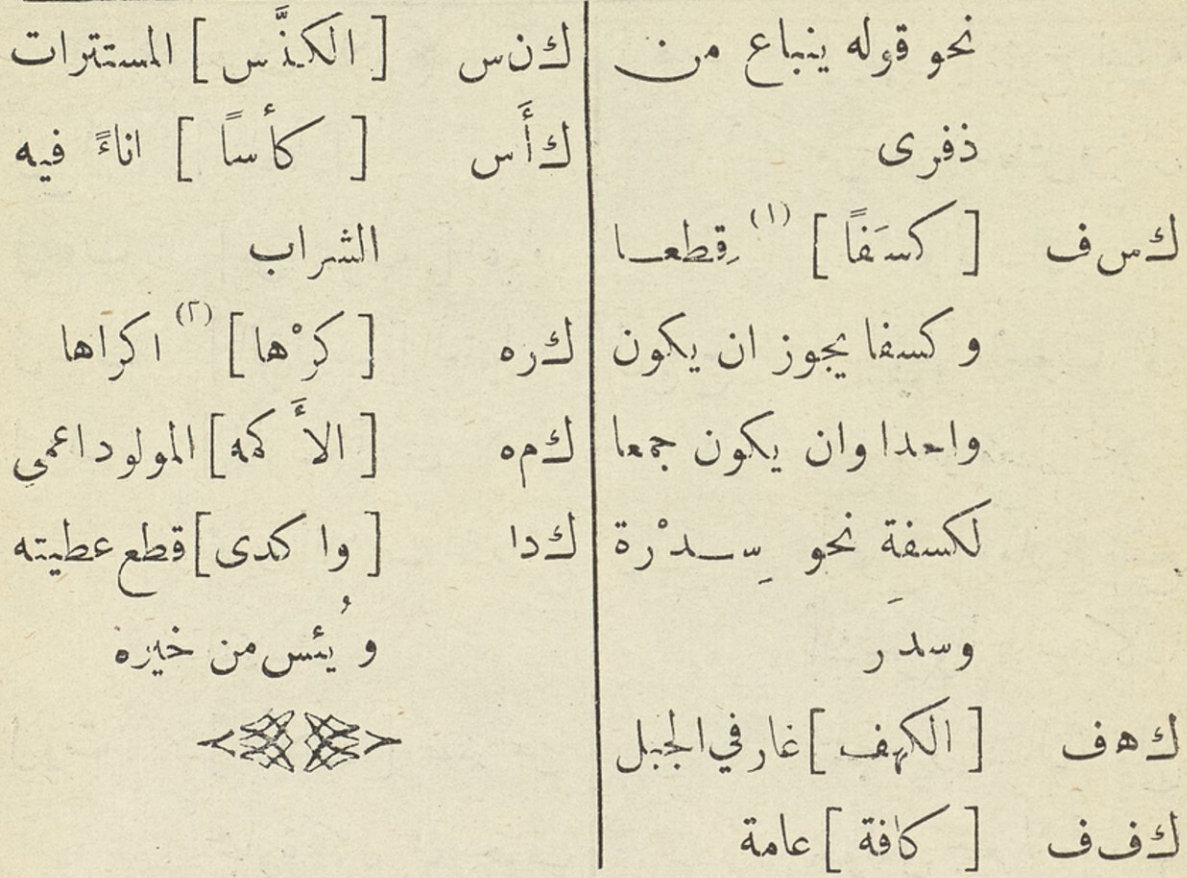 نحو قوله ينباع من
ذفرى
ك س ف [ كسَفاً ] (١) قِطعـا
و كسفا يجوز ان يكون
واحدا وان يكون جمعا
لكسفة نحو سِـدْرة
وسِدَر
ك ه ف [ الكهف ] غار في الجبل
ك ف ف [ كافة ] عامة
ك ن س [ الكنَّس ] المستترات
ك أَ س [ كأساً ] اناءً فيه
الشراب
ك ر ه [ كرْها ] (٢) اكراها
ك م ه [ الأَكمه ] المولود اعمى
ك د ا [ واكدى ] قطع عطيته
ويُئس من خيره